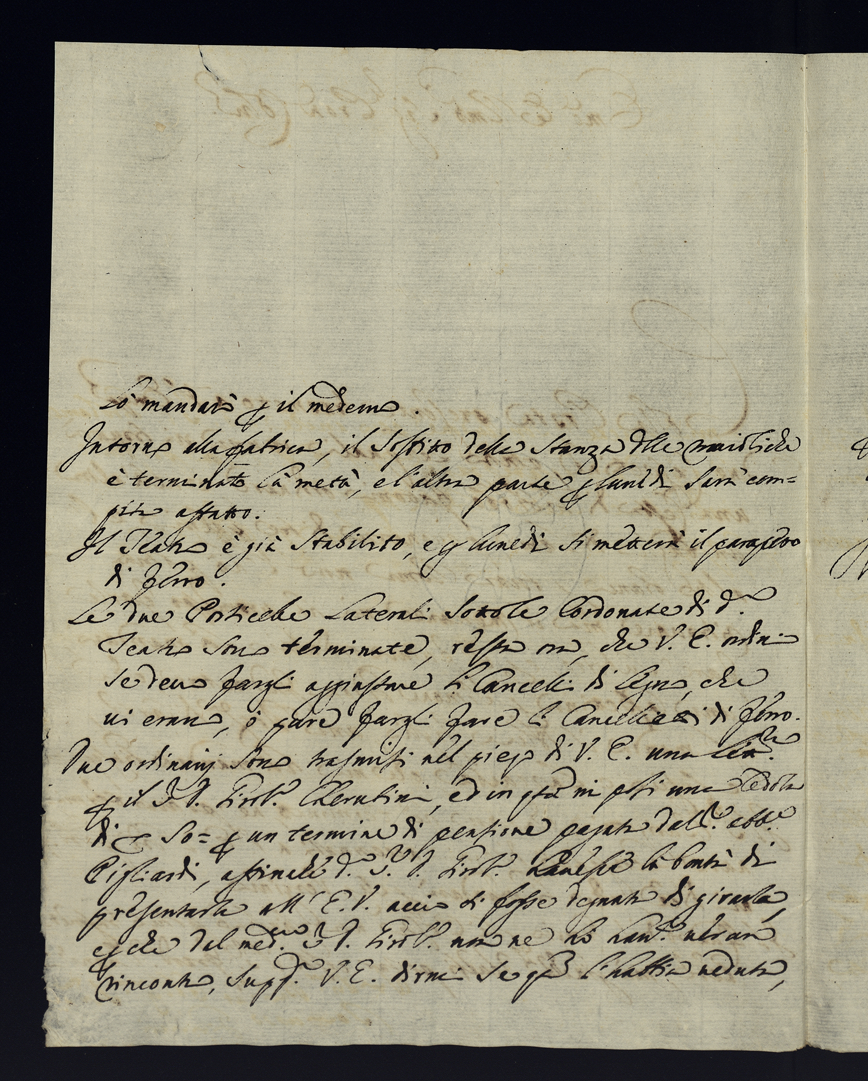 Lò mandarò p il medemo.
Intorno alla fabrica, il soffitto della stanza dlle maioliche
è terminato la metà, e l'altra parte p lunedì sarà com=
pita affatto.
Il Teatro è già stabilito, e p lunedì si metterà il parapetto
di ferro.
Le due Porticelle Laterali sotto le Cordonate di d.o
Teatro sono terminate, resta ora, che V. E. ordini
se devo fargli aggiustare li Cancelli di legno, che
vi erano, ò pure fargli fare li Cancelli di ferro.
Due ordinarij sono trasmisi nel piego di V. E. una
p il S.r D. Girol.o Cherubini, ed in q.ta vi posi una Cedola
di 50= p un termine di pensione pagata dall. abb.e
Pigliardi, affinchè d.o S.r D. Girol.o havesse la bontà di
presentarla all' E. V. acciò si fosse degnata di girarla,
e p che dal med.mo S.r D. Girol.o non ne hò hav.o verun
rincontro, supp.o V. E. dirmi se q.ta l'habbia veduta,